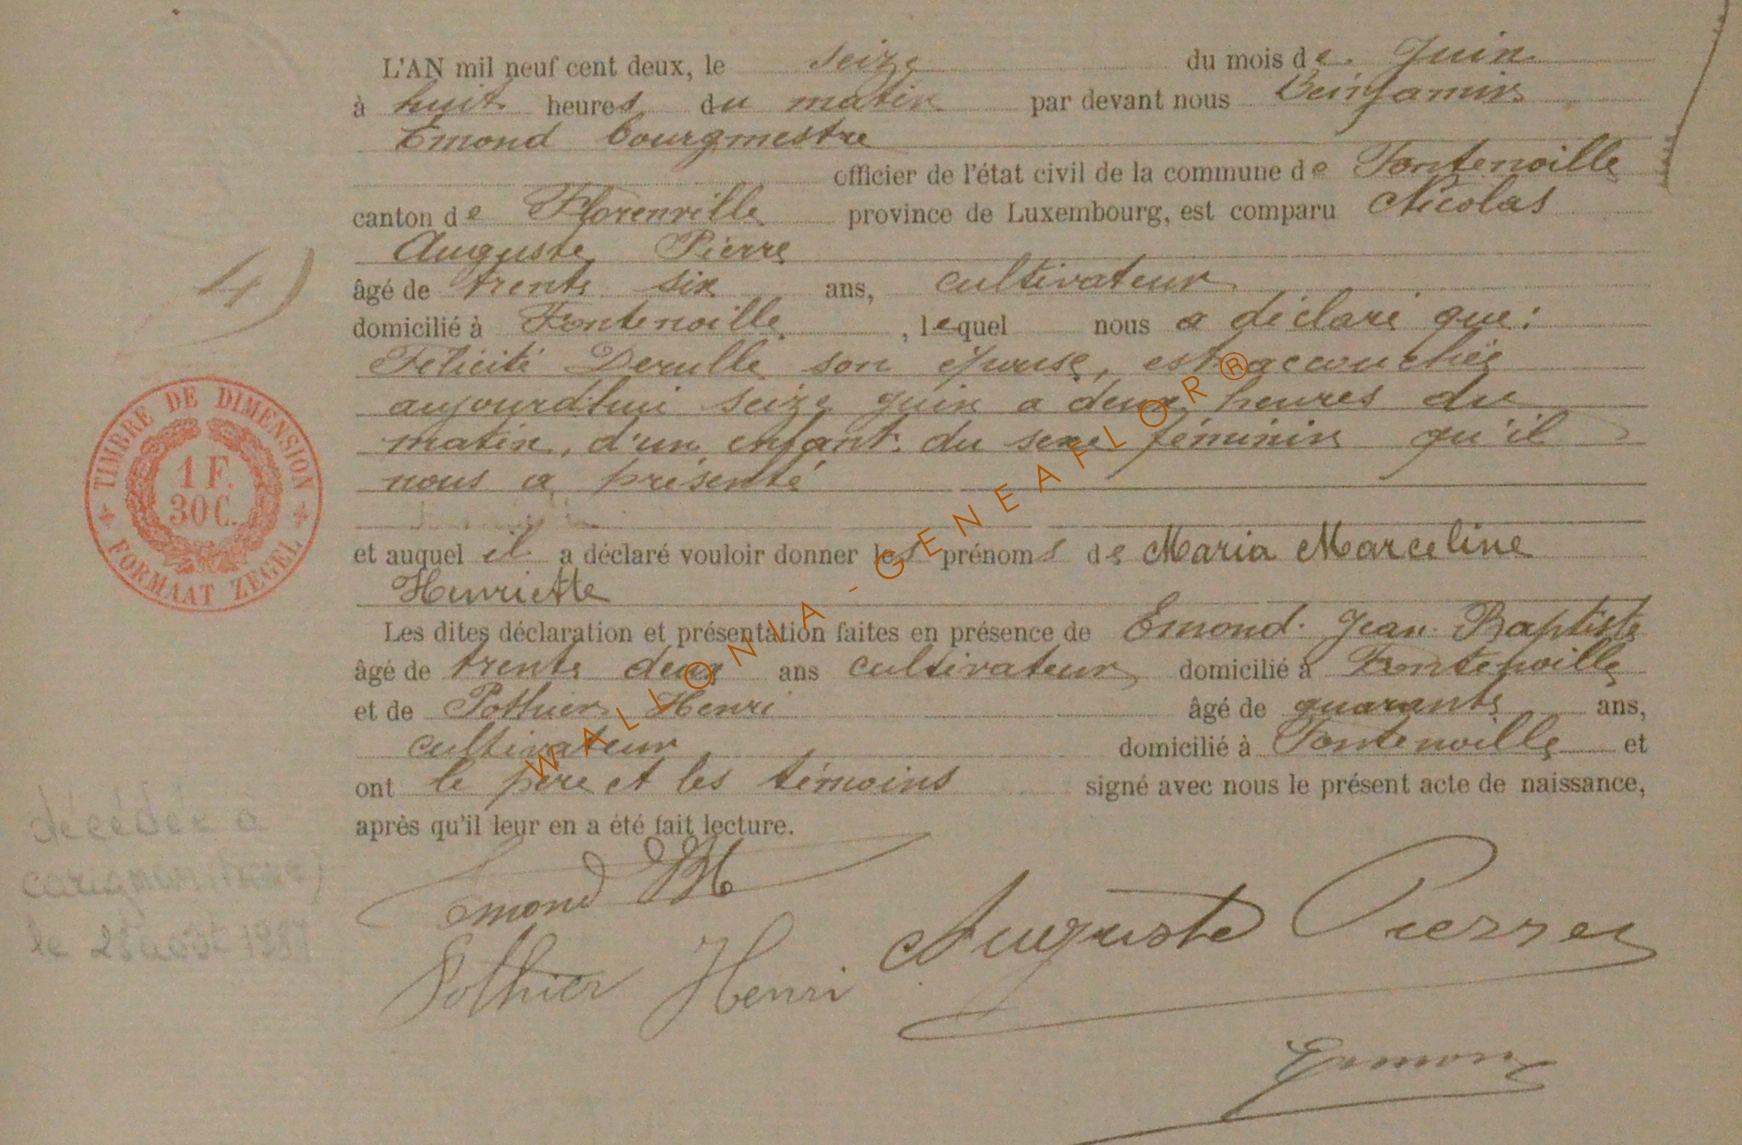 L'AN mil neuf cent deux, le seize du mois de Juin
à huit heures du matin par devant nous Benjamin
Emond bourgmestre
officier de l'état civil de la commune de Fontenoille
canton de Florenville province de Luxembourg, est comparu Nicolas
Auguste Pierre
âgé de trente six ans, cultivateur
domicilié à Fontenoille, lequel nous a déclaré que:
Félicité Derulle son épouse, est accouchée
aujourd'hui seize juin a deux heures du
matin, d'un enfant du sexe féminin qu'il
nous a présenté
et auquel il a déclaré vouloir donner les prénoms de Maria Marceline
Henriette
Les dites déclaration et présentation faites en présence de Emond Jean Baptiste
âgé de trente deux ans cultivateur domicilié à Fontenoille
et de Pothier Henri âgé de quarante ans,
cultivateur domicilié à Fontenoille et
ont le père et les témoins signé avec nous le présent acte de naissance,
après qu'il leur en a été fait lecture.
Emond
Auguste Pierre
Pothier Henri
Emond
4)
TIMBRE DE DIMENSION
1 F.
30 C.
FORMAAT ZEGEL
décédée à
carignan
le août
WALLONIA - GENEAFLOR®